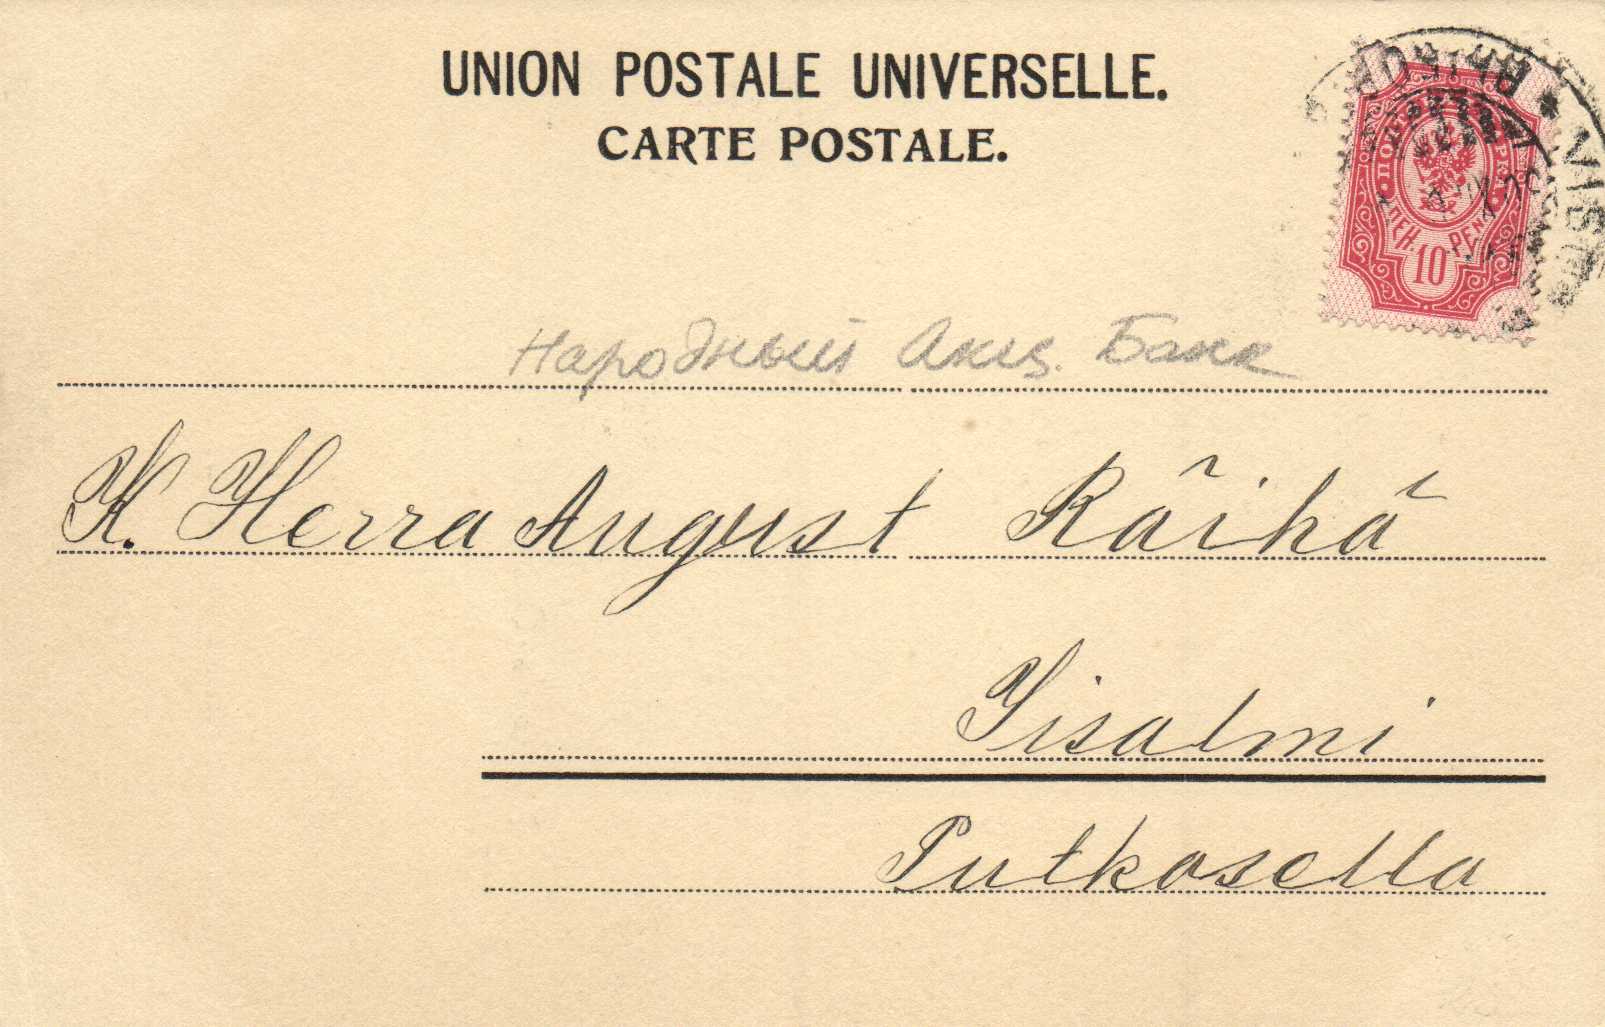 UNION POSTALE UNIVERSELLE.
CARTE POSTALE.
ПЕН. 10 PEN.
Народный Акц. Банк
K. Herra August Räihä
Yisalmi
Putkosella